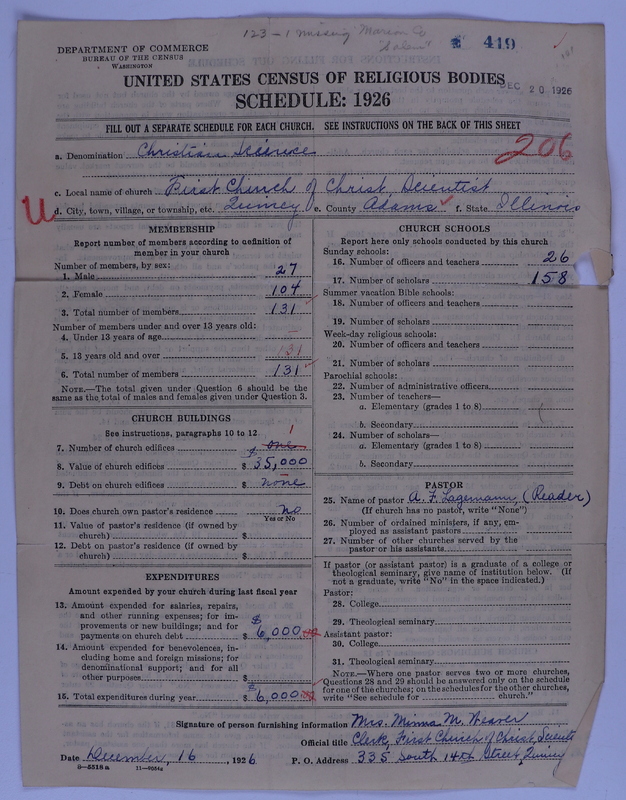 123-1 missing Marion Co
"Salem"
419
DEPARTMENT OF COMMERCE
BUREAU OF THE CENSUS
WASHINGTON
UNITED STATES CENSUS OF RELIGIOUS BODIES
DEC 20 1926
SCHEDULE: 1926
FILL OUT A SEPARATE SCHEDULE FOR EACH CHURCH. SEE INSTRUCTIONS ON THE BACK OF THIS SHEET
a. Denomination Christian Science
206
c. Local name of church First Church of Christ, Scientist
U
d. City, town, village, or township, etc. Quincy e. County Adams f. State Illinois
MEMBERSHIP
Report number of members according to definition of
member in your church
Number of members, by sex:
1. Male 27
2. Female 104
3. Total number of members 131
Number of members under and over 13 years old:
4. Under 13 years of age —
5. 13 years old and over 131
6. Total number of members 131
NOTE.—The total given under Question 6 should be the
same as the total of males and females given under Question 3.
CHURCH BUILDINGS
See instructions, paragraphs 10 to 12.
7. Number of church edifices one 1
8. Value of church edifices $ 35,000
9. Debt on church edifices $ none
10. Does church own pastor's residence no
Yes or No
11. Value of pastor's residence (if owned by
church) $
12. Debt on pastor's residence (if owned by
church) $
EXPENDITURES
Amount expended by your church during last fiscal year
13. Amount expended for salaries, repairs,
and other running expenses; for im-
provements or new buildings; and for
payments on church debt $ 6,000
14. Amount expended for benevolences, in-
cluding home and foreign missions; for
denominational support; and for all
other purposes $
15. Total expenditures during year $ 6,000
CHURCH SCHOOLS
Report here only schools conducted by this church
Sunday schools:
16. Number of officers and teachers 26
17. Number of scholars 158
Summer vacation Bible schools:
18. Number of officers and teachers
19. Number of scholars
Week-day religious schools:
20. Number of officers and teachers
21. Number of scholars
Parochial schools:
22. Number of administrative officers
23. Number of teachers—
a. Elementary (grades 1 to 8)
b. Secondary
24. Number of scholars—
a. Elementary (grades 1 to 8)
b. Secondary
PASTOR
25. Name of pastor A. F. Lagemann, (Reader)
(If church has no pastor, write "None")
26. Number of ordained ministers, if any, em-
ployed as assistant pastors
27. Number of other churches served by the
pastor or his assistants
If pastor (or assistant pastor) is a graduate of a college or
theological seminary, give name of institution below. (If
not a graduate, write "No" in the space indicated.)
Pastor:
28. College
29. Theological seminary
Assistant pastor:
30. College
31. Theological seminary
NOTE.—Where one pastor serves two or more churches,
Questions 28 and 29 should be answered only on the schedule
for one of the churches; on the schedules for the other churches,
write "See schedule for church."
Signature of person furnishing information Mrs. Minna M. Weaver
Official title Clerk, First Church of Christ, Scientist
Date December, 16, 1926 P. O. Address 335 South 14th Street, Quincy
8—5518a 11—9054a